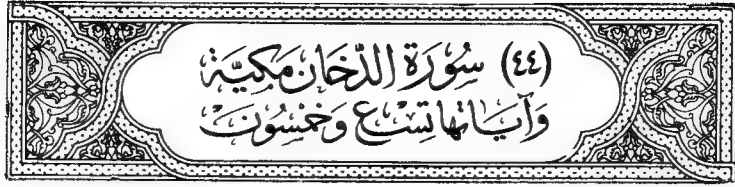 (٤٤) سُوْرَة الدّخَان مَكيَّة
وَآيَاتها تِسْع وَخَمْسُونَ